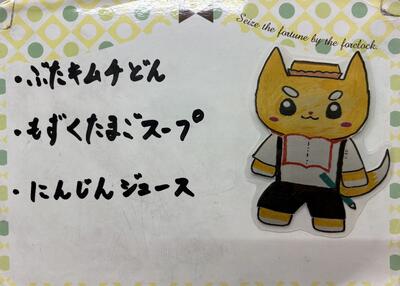 Seize the fortune by the forelock.
・ぶたキムチどん
・もずくたまごスープ
・にんじんジュース